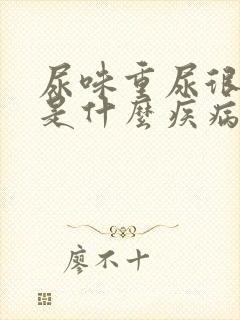 尿味重尿很
是什麼疾病
廖不十